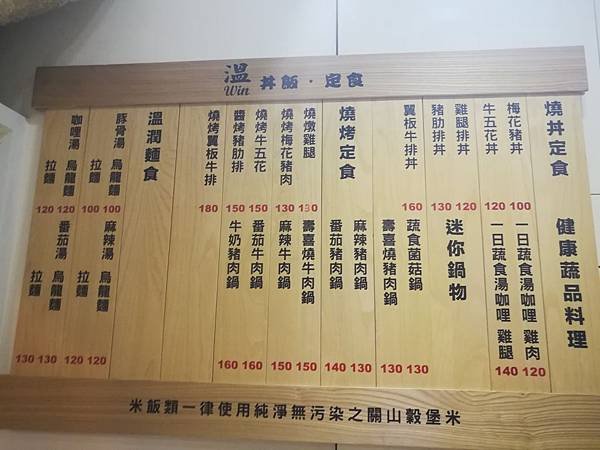 溫 丼飯·定食
Win
燒丼定食
梅花豬丼 100
牛五花丼 120
雞腿排丼 120
豬肋排丼 130
翼板牛排丼 160
燒烤定食
燒燉雞腿 130
燒烤梅花豬肉 130
燒烤牛五花 150
醬烤豬肋排 150
燒烤翼板牛排 180
溫潤麵食
豚骨湯 烏龍麵 100
拉麵 100
咖哩湯 烏龍麵 120
拉麵 120
健康蔬品料理
一日蔬食湯咖哩 雞肉 120
一日蔬食湯咖哩 雞腿 140
迷你鍋物
蔬食菌菇鍋 130
壽喜燒豬肉鍋 130
麻辣豬肉鍋 130
番茄豬肉鍋 140
壽喜燒牛肉鍋 150
麻辣牛肉鍋 150
番茄牛肉鍋 160
牛奶豬肉鍋 160
麻辣湯 烏龍麵 120
拉麵 120
番茄湯 烏龍麵 130
拉麵 130
米飯類一律使用純淨無污染之關山穀堡米